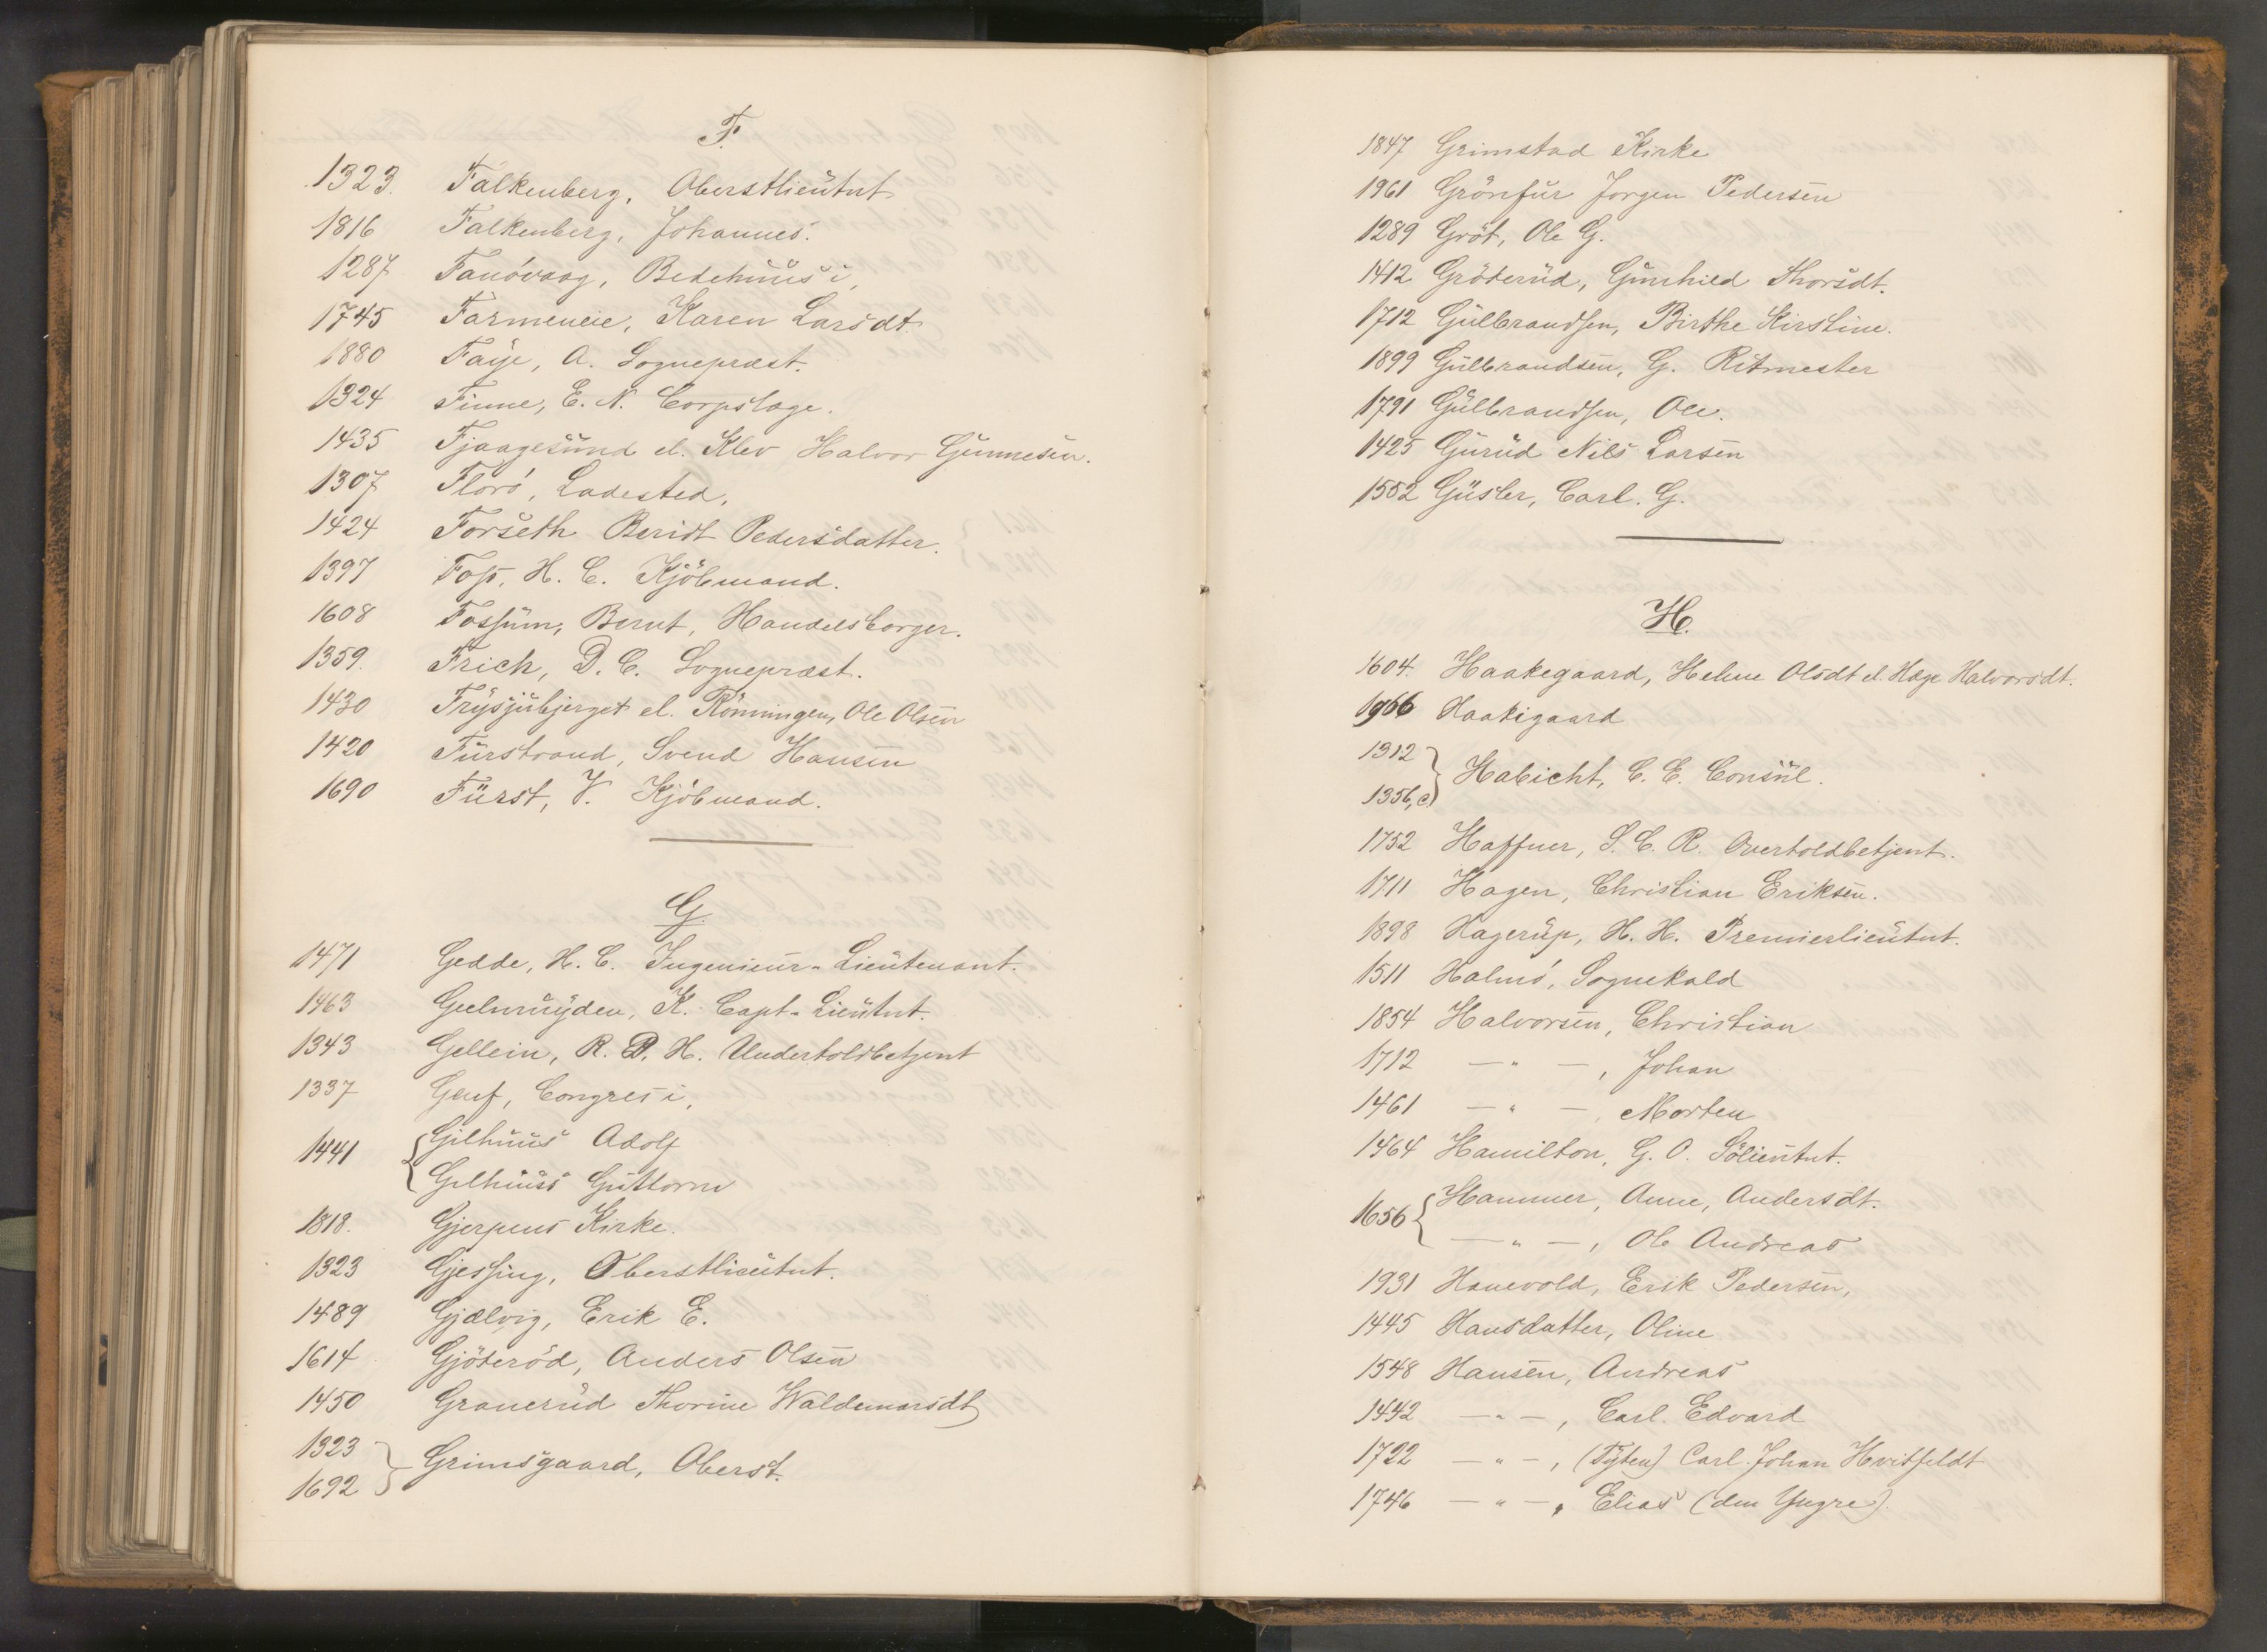 F.
1323. Falkenberg, Oberstlieutnt
1816 Falkenberg, Johannes.
1287 Fanövaag, Bedehuus i,
1745 Farmeneie, Karen Larsdt
1880 Faye, A. Sognepræst.
1324 Finne, E. N. Corpslæge.
1435 Fjaagesund el. Klev Halvor Gunnesen.
1307 Florö, Ladested.
1424 Forseth Beridt Pedersdatter.
1397 Foss, H. C. Kjöbmand.
1608 Fossum, Bernt, Handelsborger.
1359. Frich, D. C. Sognepræst.
1430 Frysjubjerget el. Rönningen, Ole Olsen
1420 Furstrand, Svend Hansen
1690 Fürst, V. Kjöbmand.
G.
1471 Gedde, H. C. Ingenieur-Lieutenant.
1463 Geelmuyden, K. Capt-Lieutnt.
1343 Gellein, R. D. H. Undertoldbetjent
1337 Genf, Congres i,
1441 { Gilhuus Adolf
Gilhuus Guttorm
1818. Gjerpens Kirke.
1323 Gjessing, Oberstlieutnt.
1489 Gjælvig, Erik E.
1614 Gjöteröd, Anders Olsen
1450 Granerud Thorine Waldemarsdt
1323
1692 } Grimsgaard, Oberst.
1847 Grimstad Kirke
1961 Grönfur Jorgen Pedersen
1289 Gröt, Ole G.
1412 Gröterud, Gunhild Thorsdt.
1712 Gulbrandsen, Birthe Kirstine.
1899 Gulbrandsen, G. Ritmester
1791 Gulbrandsen, Ole.
1425 Gurud Nils Larsen
1552 Güsler, Carl. G.
H.
1604. Haakegaard, Helene Olsdt el. Hæge Halvorsdt.
1966 Haakigaard
1312
1356,c. } Habicht, C. E. Consul.
1752 Haffner, S. C. R. Overtoldbetjent.
1711 Hagen, Christian Eriksen.
1898 Hagerup, H. H. Premierlieutnt.
1511 Halmö, Sognekald
1854 Halvorsen, Christian
1712 — " —, Johan
1461 — " —, Morten
1464 Hamilton, G. O. Sölieutnt.
1656 { Hammer, Anne, Andersdt.
— " —, Ole Andreas
1931 Hanevold, Erik Pedersen,
1445 Hansdatter, Oline
1548 Hansen, Andreas
1442 — " —, Carl Edvard
1722 — " —, (Tyten) Carl Johan Hvitfeldt
1746 — " —, Elias (den Yngre).